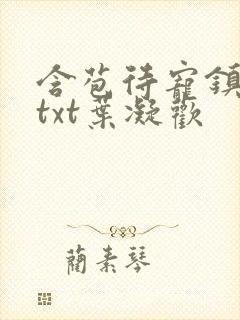 含苞待寵鎮
txt葉凝歡
藺素琴